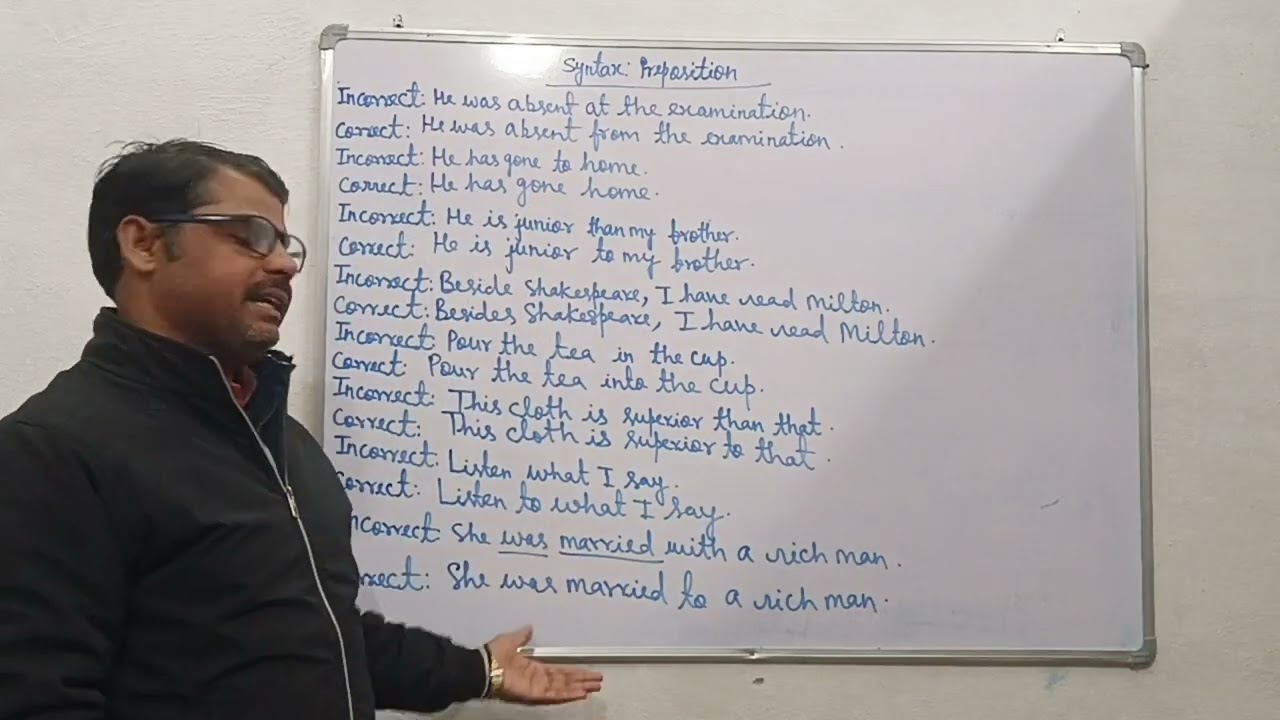 Syntax: Preposition
Incorrect: He was absent at the examination.
Correct: He was absent from the examination.
Incorrect: He has gone to home.
Correct: He has gone home.
Incorrect: He is junior than my brother.
Correct: He is junior to my brother.
Incorrect: Beside Shakespeare, I have read Milton.
Correct: Besides Shakespeare, I have read Milton.
Incorrect: Pour the tea in the cup.
Correct: Pour the tea into the cup.
Incorrect: This cloth is superior than that.
Correct: This cloth is superior to that.
Incorrect: Listen what I say.
Correct: Listen to what I say.
Incorrect: She was married with a rich man.
Correct: She was married to a rich man.